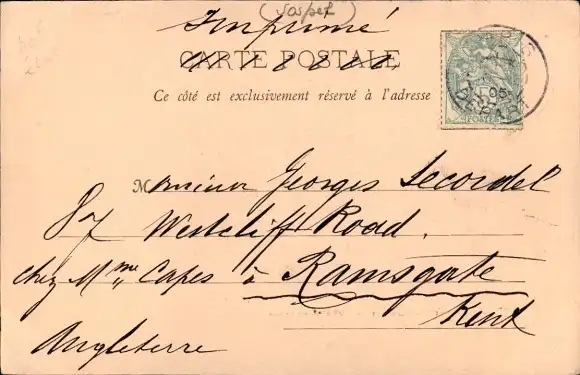 (Jospet)
Imprimé
CARTE POSTALE
Ce côté est exclusivement réservé à l'adresse
PARIS
05
DEPART
5
POSTES
Monsieur Georges Lecordel
87 Westcliff Road.
chez Mme Capes à Ramsgate
Kent
Angleterre